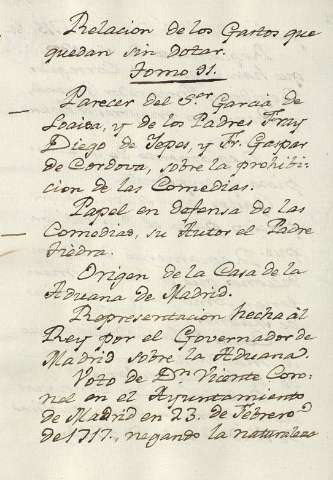 Relacion de los Gastos que
quedan sin dotar.
Tomo 91.
Parecer del S.or Garcia de
Loaisa, y de los Padres Fray
Diego de Yepes, y Fr. Gaspar
de Cordova, sobre la prohibi-
cion de las Comedias.
Papel en defensa de las
Comedias, su Autor el Padre
Fiedra.
Origen de la Casa de la
Aduana de Madrid.
Representacion hecha al
Rey por el Governador de
Madrid sobre la Aduana.
Voto de D.n Vicente Coro-
nel en el Ayuntamiento
de Madrid en 23. de Febrero
de 1717., negando la naturaleza